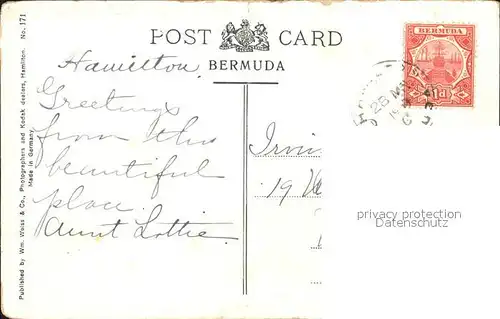 POST CARD
BERMUDA
Hamilton.
Greetings
from this
beautiful
place.
Aunt Lottie.
Irvin
19
BERMUDA
1d
28 M
privacy protection
Datenschutz
Published by Wm. Weiss & Co., Photographers and Kodak dealers, Hamilton. No. 171
Made in Germany.